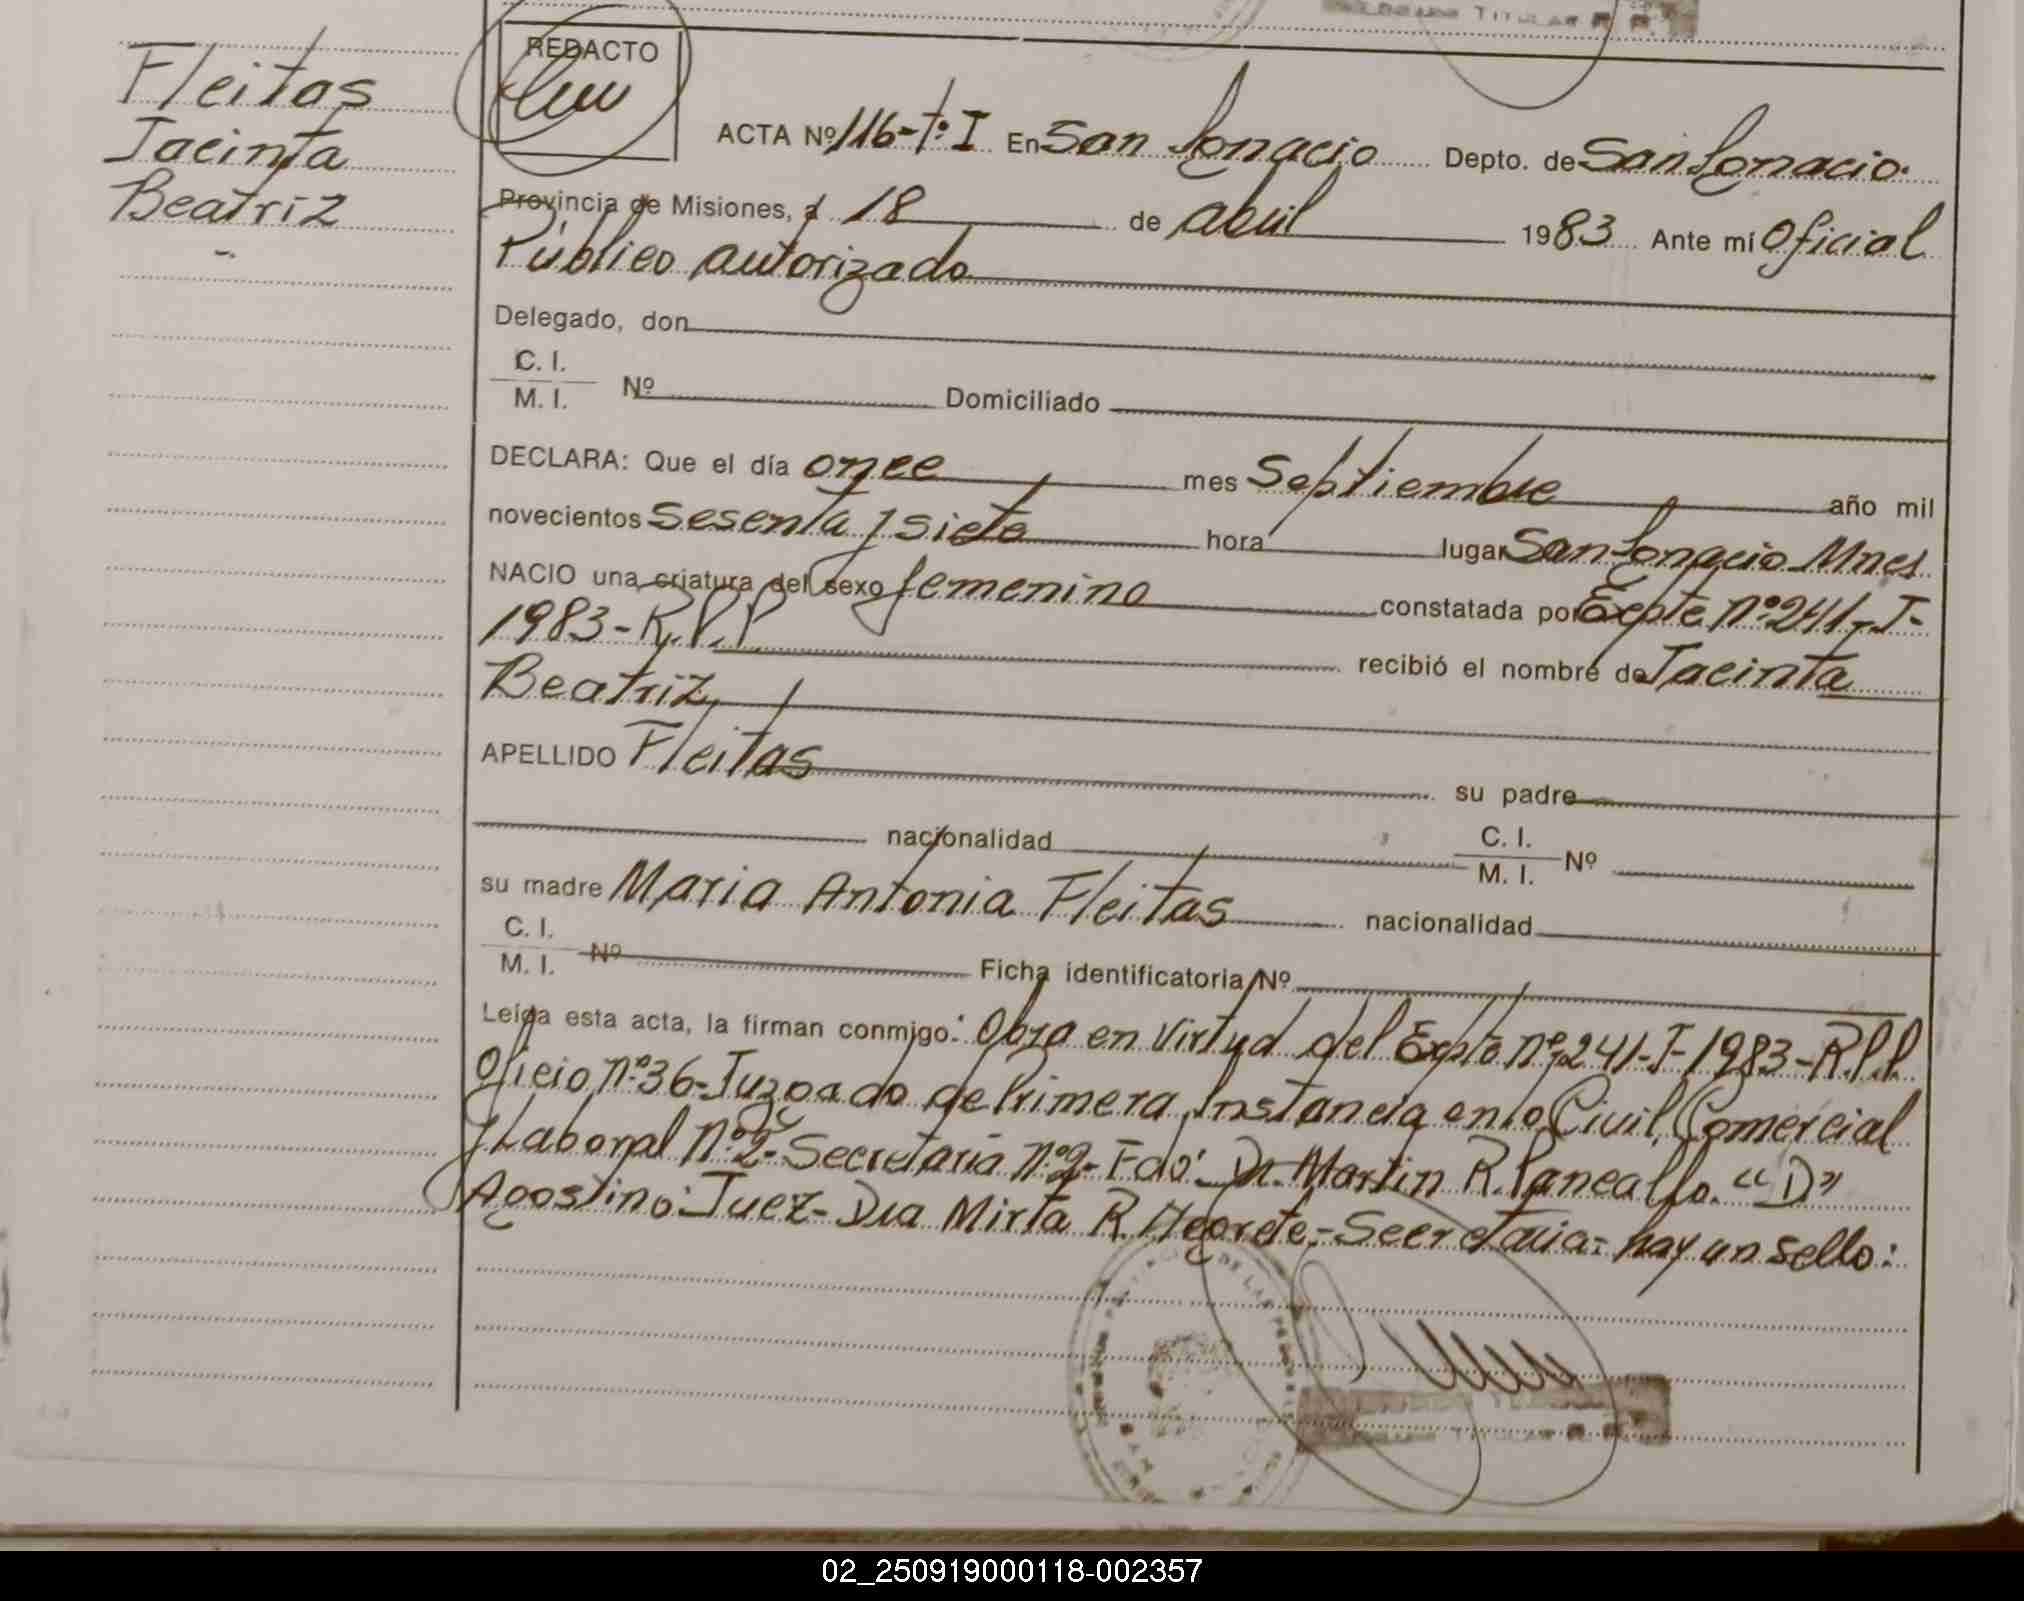 Fleitas
Jacinta
Beatriz
REDACTO
ACTA Nº 116-tº I En San Ignacio Depto. de San Ignacio.
Provincia de Misiones, a 18 de abril 1983 Ante mí Oficial
Público autorizado
Delegado, don
C. I.
M. I. Nº Domiciliado
DECLARA: Que el día once mes Septiembre año mil
novecientos Sesenta y siete hora lugar San Ignacio Mnes
NACIO una criatura del sexo femenino constatada por Expte nº 241-J-
1983-R.P.P. recibió el nombre de Jacinta
Beatriz
APELLIDO Fleitas su padre
nacionalidad C. I.
M. I. Nº
su madre Maria Antonia Fleitas nacionalidad
C. I.
M. I. Nº Ficha identificatoria Nº
Leída esta acta, la firman conmigo: Obra en virtud del Expte nº 241-J-1983-R.P.P.
Oficio nº 36-Juzgado de Primera Instancia en lo Civil, Comercial
y Laboral nº 2-Secretaria nº 2-Fdo: Dr. Martin R. "D"
Agostino: Juez- Dra Mirta R. -Secretaria- hay un sello:
TITULAR
02_250919000118-002357